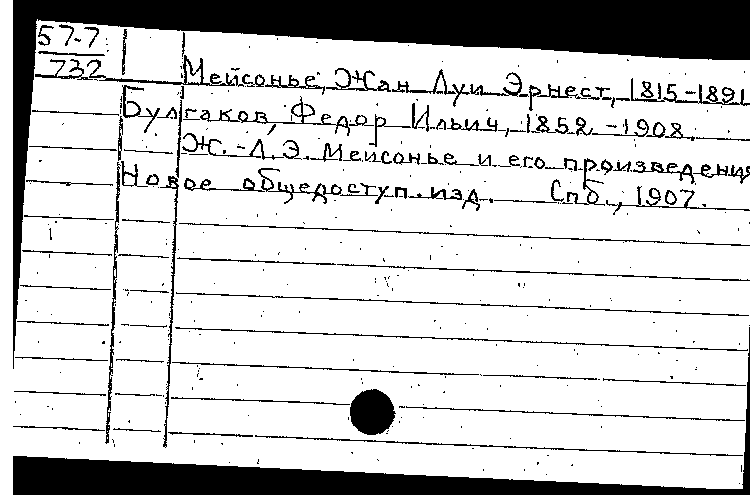 57-7
732
Мейсонье, Жан Луи Эрнест, 1815-1891
Булгаков, Федор Ильич, 1852-1908.
Ж.-Л.Э. Мейсонье и его произведения
Новое общедоступ. изд. Спб., 1907.